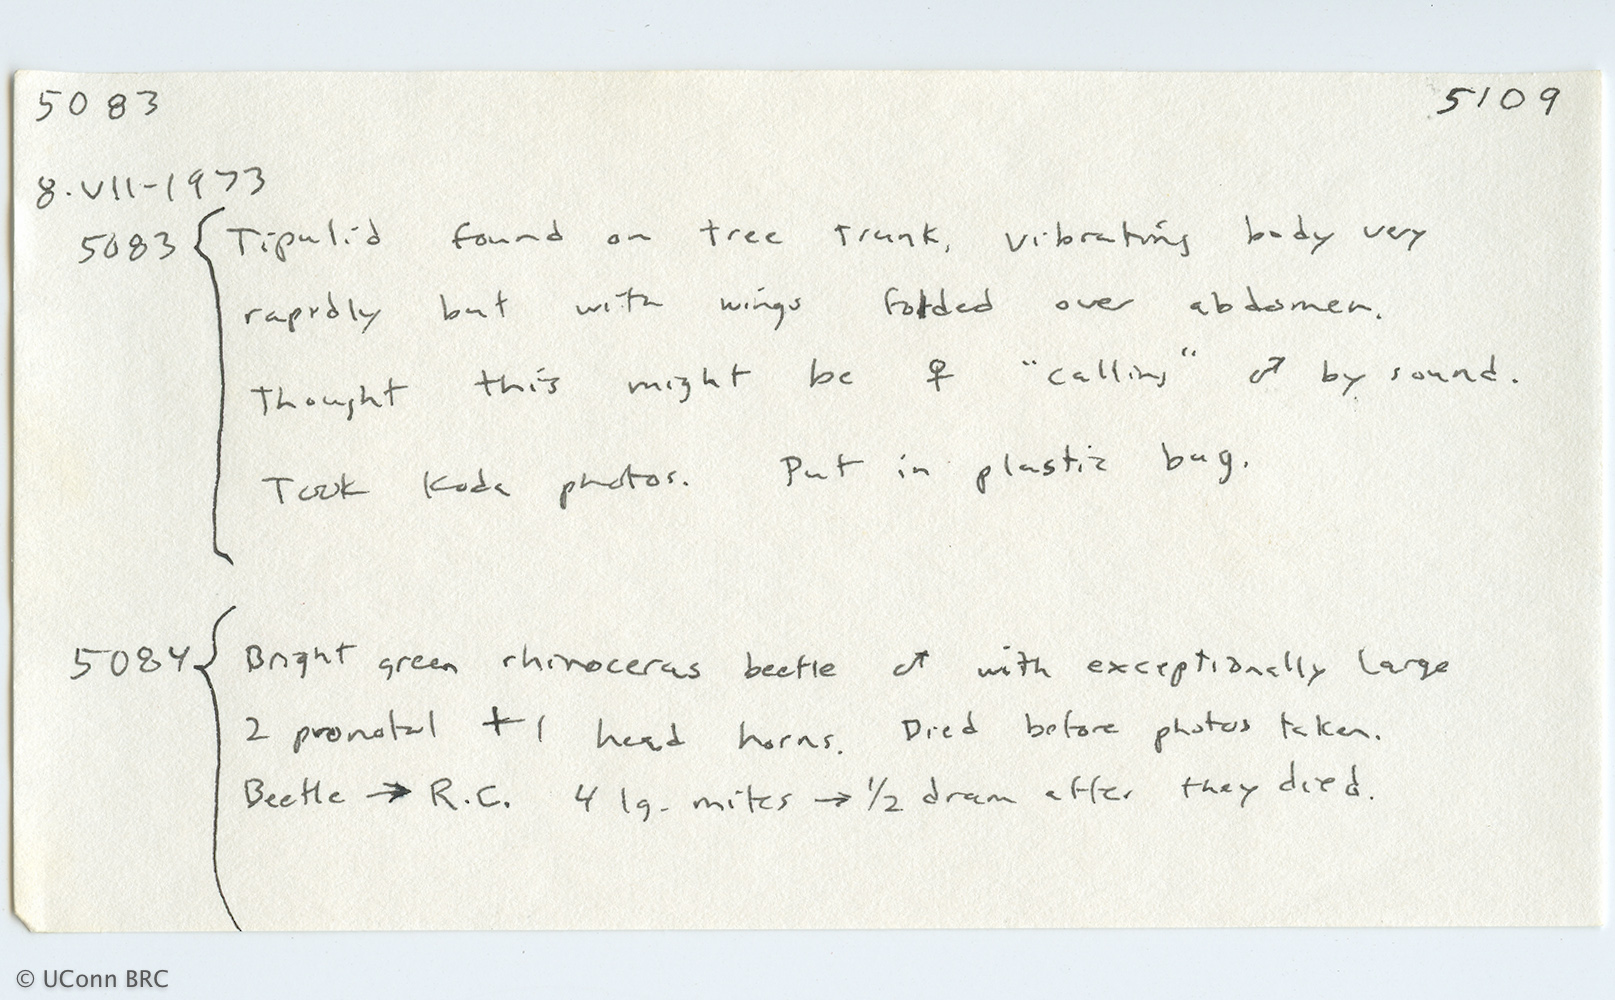 5083 5109
8.VII-1973
5083 { Tipulid found on tree trunk, vibrating body very
rapidly but with wings folded over abdomen.
Thought this might be ♀ "calling" ♂ by sound.
Took Koda photos. Put in plastic bag.
5084 { Bright green rhinoceras beetle ♂ with exceptionally large
2 pronotal + 1 head horns. Died before photos taken.
Beetle → R.C. 4 lg. mites → 1/2 dram after they died.
© UConn BRC